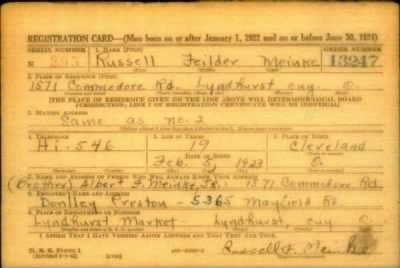 REGISTRATION CARD—(Men born on or after January 1, 1922 and on or before June 30, 1924)
SERIAL NUMBER 1. NAME (Print) ORDER NUMBER
N 295 Russell Feilder Meinke 13247
2. PLACE OF RESIDENCE (Print)
1571 Commodore Rd. Lyndhurst, cuy. O.
[THE PLACE OF RESIDENCE GIVEN ON THE LINE ABOVE WILL DETERMINE LOCAL BOARD
JURISDICTION; LINE 2 OF REGISTRATION CERTIFICATE WILL BE IDENTICAL]
3. MAILING ADDRESS
Same as no. 2
4. TELEPHONE 5. AGE IN YEARS 6. PLACE OF BIRTH
Hi-546 19 Cleveland
DATE OF BIRTH
Feb. 5, 1923 O.
7. NAME AND ADDRESS OF PERSON WHO WILL ALWAYS KNOW YOUR ADDRESS
(Brother) Albert F. Meinke, Jr. 1571 Commodore Rd.
8. EMPLOYER'S NAME AND ADDRESS
Donlley Preston - 5365 Mayfield Rd
9. PLACE OF EMPLOYMENT OR BUSINESS
Lyndhurst Market Lyndhurst, cuy O.
I AFFIRM THAT I HAVE VERIFIED ABOVE ANSWERS AND THAT THEY ARE TRUE.
D. S. S. FORM 1
Russell F. Meinke